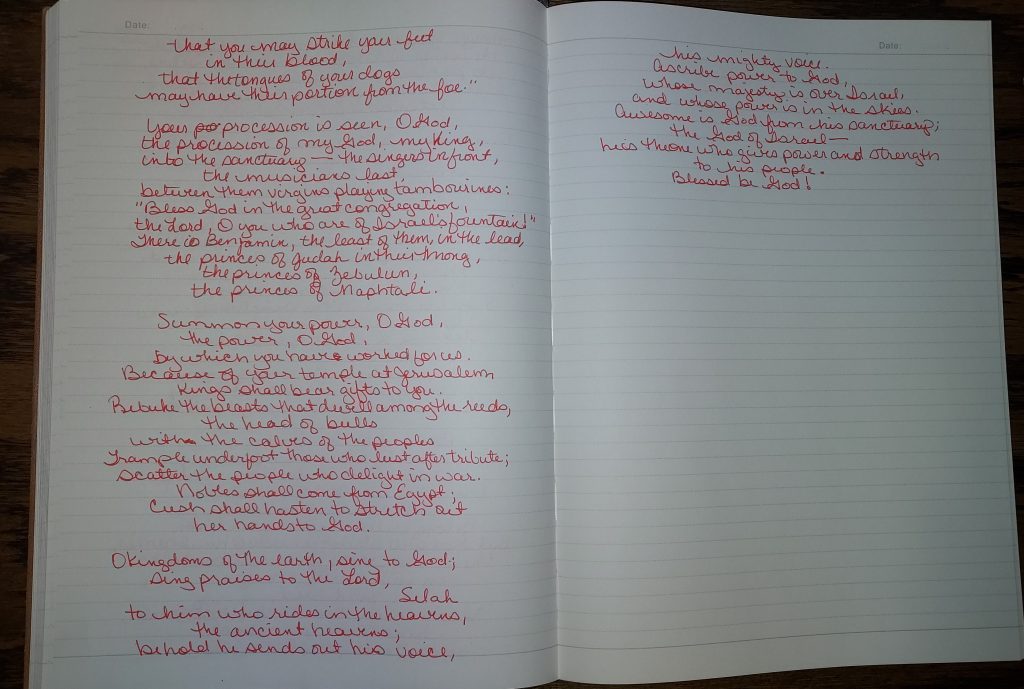 Date:
that you may strike your feet
in their blood,
that the tongues of your dogs
may have their portion from the foe."
Your po procession is seen, O God,
the procession of my God, my King,
into the sanctuary — the singers in front,
the musicians last,
between them virgins playing tambourines:
"Bless God in the great congregation,
the Lord, O you who are of Israel's fountain!"
There is Benjamin, the least of them, in the lead,
the princes of Judah in their throng,
the princes of Zebulun,
the princes of Naphtali.
Summon your power, O God,
the power, O God,
by which you have worked for us.
Because of your temple at Jerusalem
Kings shall bear gifts to you.
Rebuke the beasts that dwell among the reeds,
the head of bulls
with the calves of the peoples
Trample underfoot those who lust after tribute;
scatter the people who delight in war.
Nobles shall come from Egypt;
Cush shall hasten to stretch out
her hands to God.
O kingdoms of the earth, sing to God;
sing praises to the Lord,
Selah
to him who rides in the heavens,
the ancient heavens;
behold he sends out his voice,
Date:
his mighty voice.
Ascribe power to God,
whose majesty is over Israel,
and whose power is in the skies.
Awesome is God from his sanctuary;
the God of Israel—
he is the one who gives power and strength
to his people.
Blessed be God!